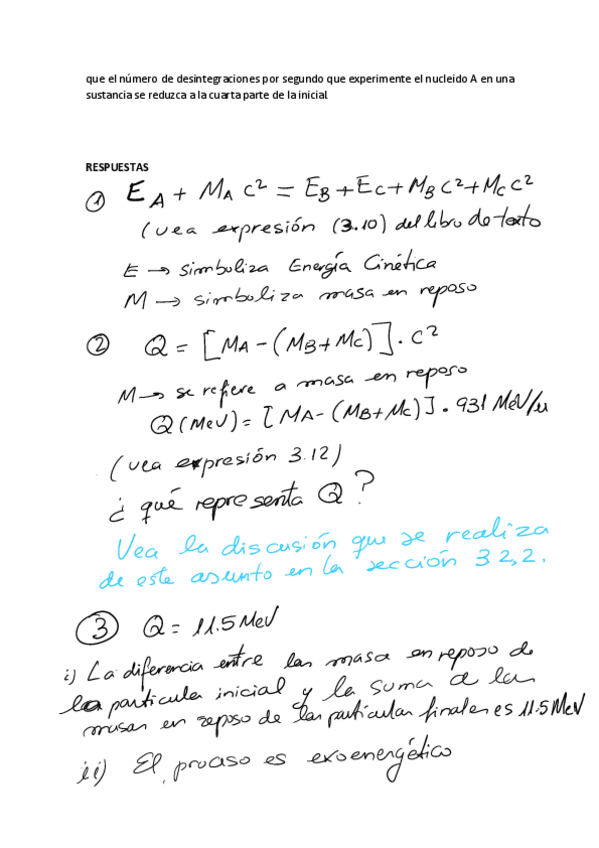 que el número de desintegraciones por segundo que experimente el nucleido A en una
sustancia se reduzca a la cuarta parte de la inicial
RESPUESTAS
① E_A + M_A c² = E_B + E_C + M_B c² + M_C c²
(vea expresión (3.10) del libro de texto
E → simboliza Energía Cinética
M → simboliza masa en reposo
② Q = [M_A - (M_B + M_C)] . c²
M → se refiere a masa en reposo
Q (MeV) = [M_A - (M_B + M_C)] . 931 MeV/u
(vea expresión 3.12)
¿ qué representa Q ?
Vea la discusión que se realiza
de este asunto en la sección 3.2,2.
③ Q = 11.5 MeV
i) La diferencia entre las masa en reposo de
la particula inicial y la suma de las
masas en reposo de las particulas finales es 11.5 MeV
ii) El proceso es exoenergético